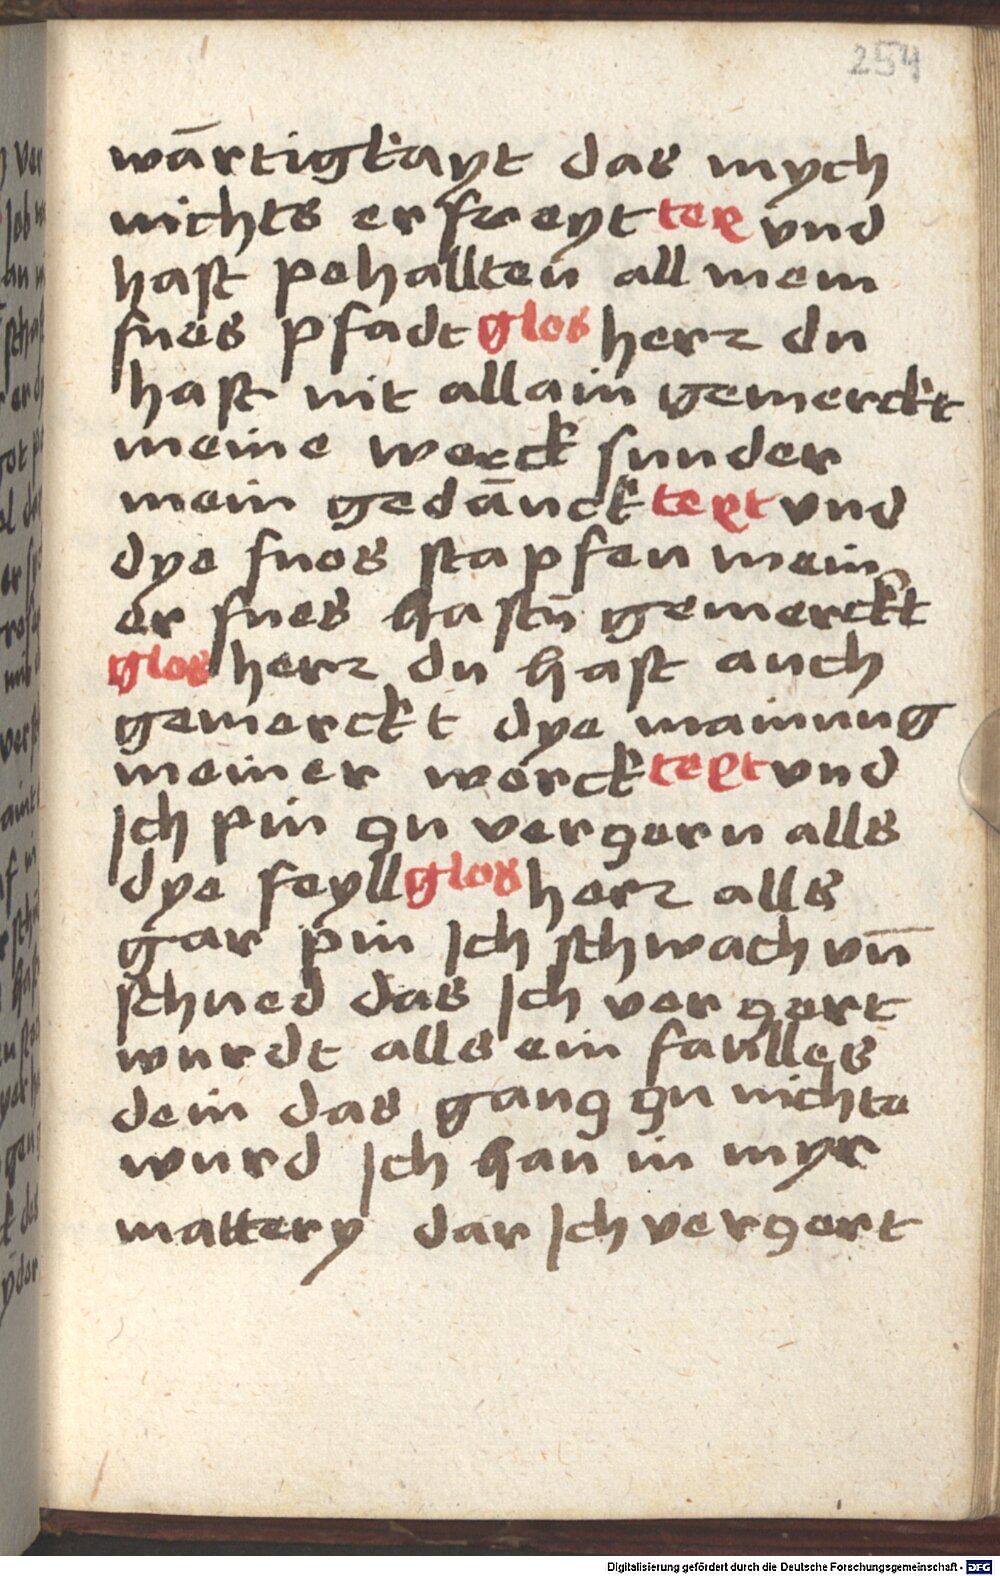 254
wārtigkayt das mych
nichts erfreyt tex vnd
hast pehallten all mein
fues pfadt glos herr du
hast nit allain gemerckt
meine werck sunder
mein gedānck text vnd
dye fues stapfen mein
er fues hastu gemerckt
glos herr du hast auch
gemerckt dye mainung
meiner werck text vnd
Ich pin zu verzern alls
dye feyll glos herr alls
gar pin Ich schwach vn̄
schned das Ich verzert
wurdt alls ein faulles
dein das ganz zu nichte
wurd Ich han in myr
mattery dar Ich verzert
Digitalisierung gefördert durch die Deutsche Forschungsgemeinschaft - DFG